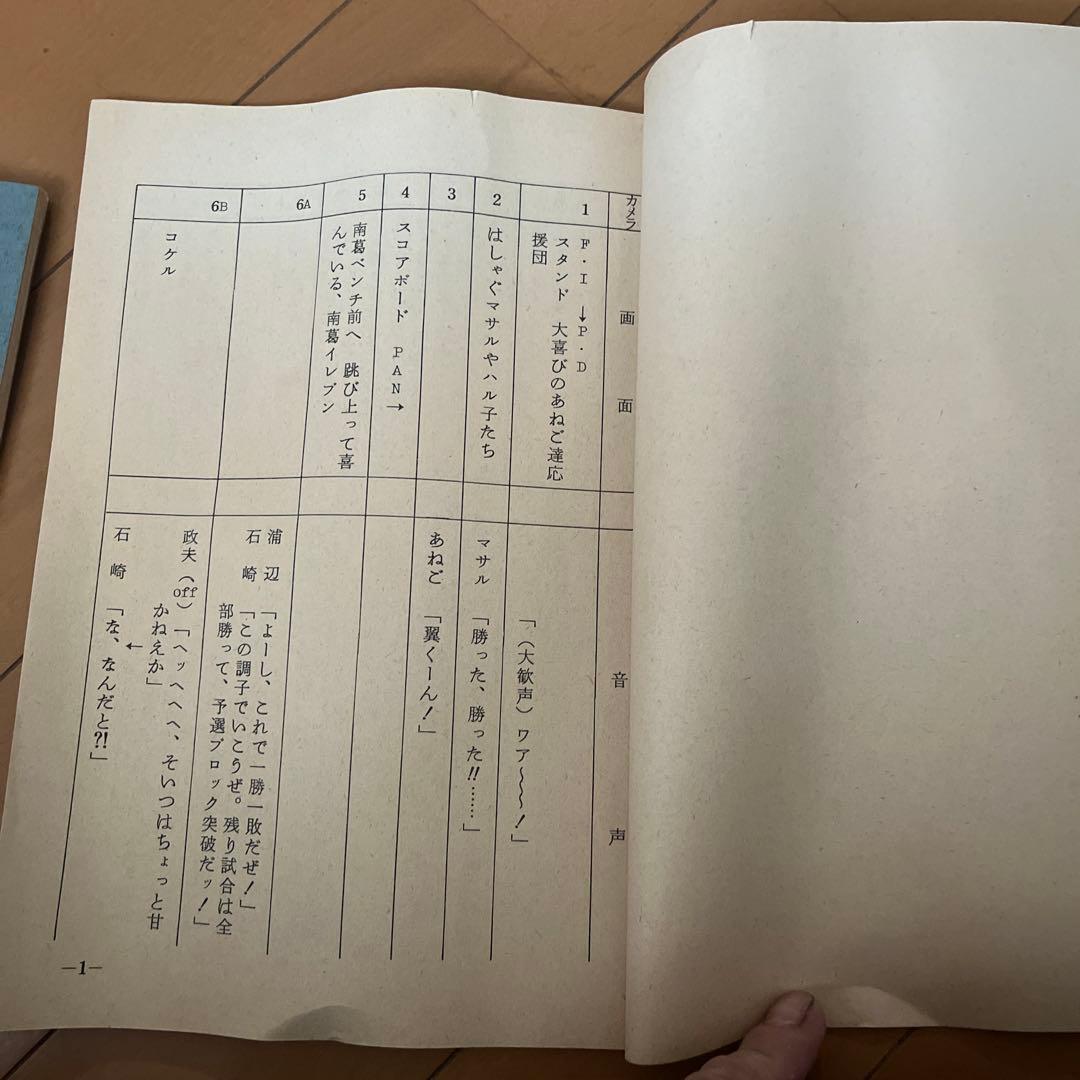 カメラ
画面
音声
1
F・I →P・D
スタンド 大喜びのあねご達応
援団
「(大歓声)ワア〜〜〜!」
2
はしゃぐマサルやハル子たち
マサル 「勝った、勝った!!……」
3
あねご 「翼くーん!」
4
スコアボード PAN→
5
南葛ベンチ前へ 跳び上って喜
んでいる、南葛イレブン
6A
浦辺 「よーし、これで一勝一敗だぜ!」
石崎 「この調子でいこうぜ。残り試合は全
部勝って、予選ブロック突破だッ!」
6B
コケル
政夫(off)「ヘッヘヘヘ、そいつはちょっと甘
かねえか」
←
石崎 「な、なんだと?!」
—1—